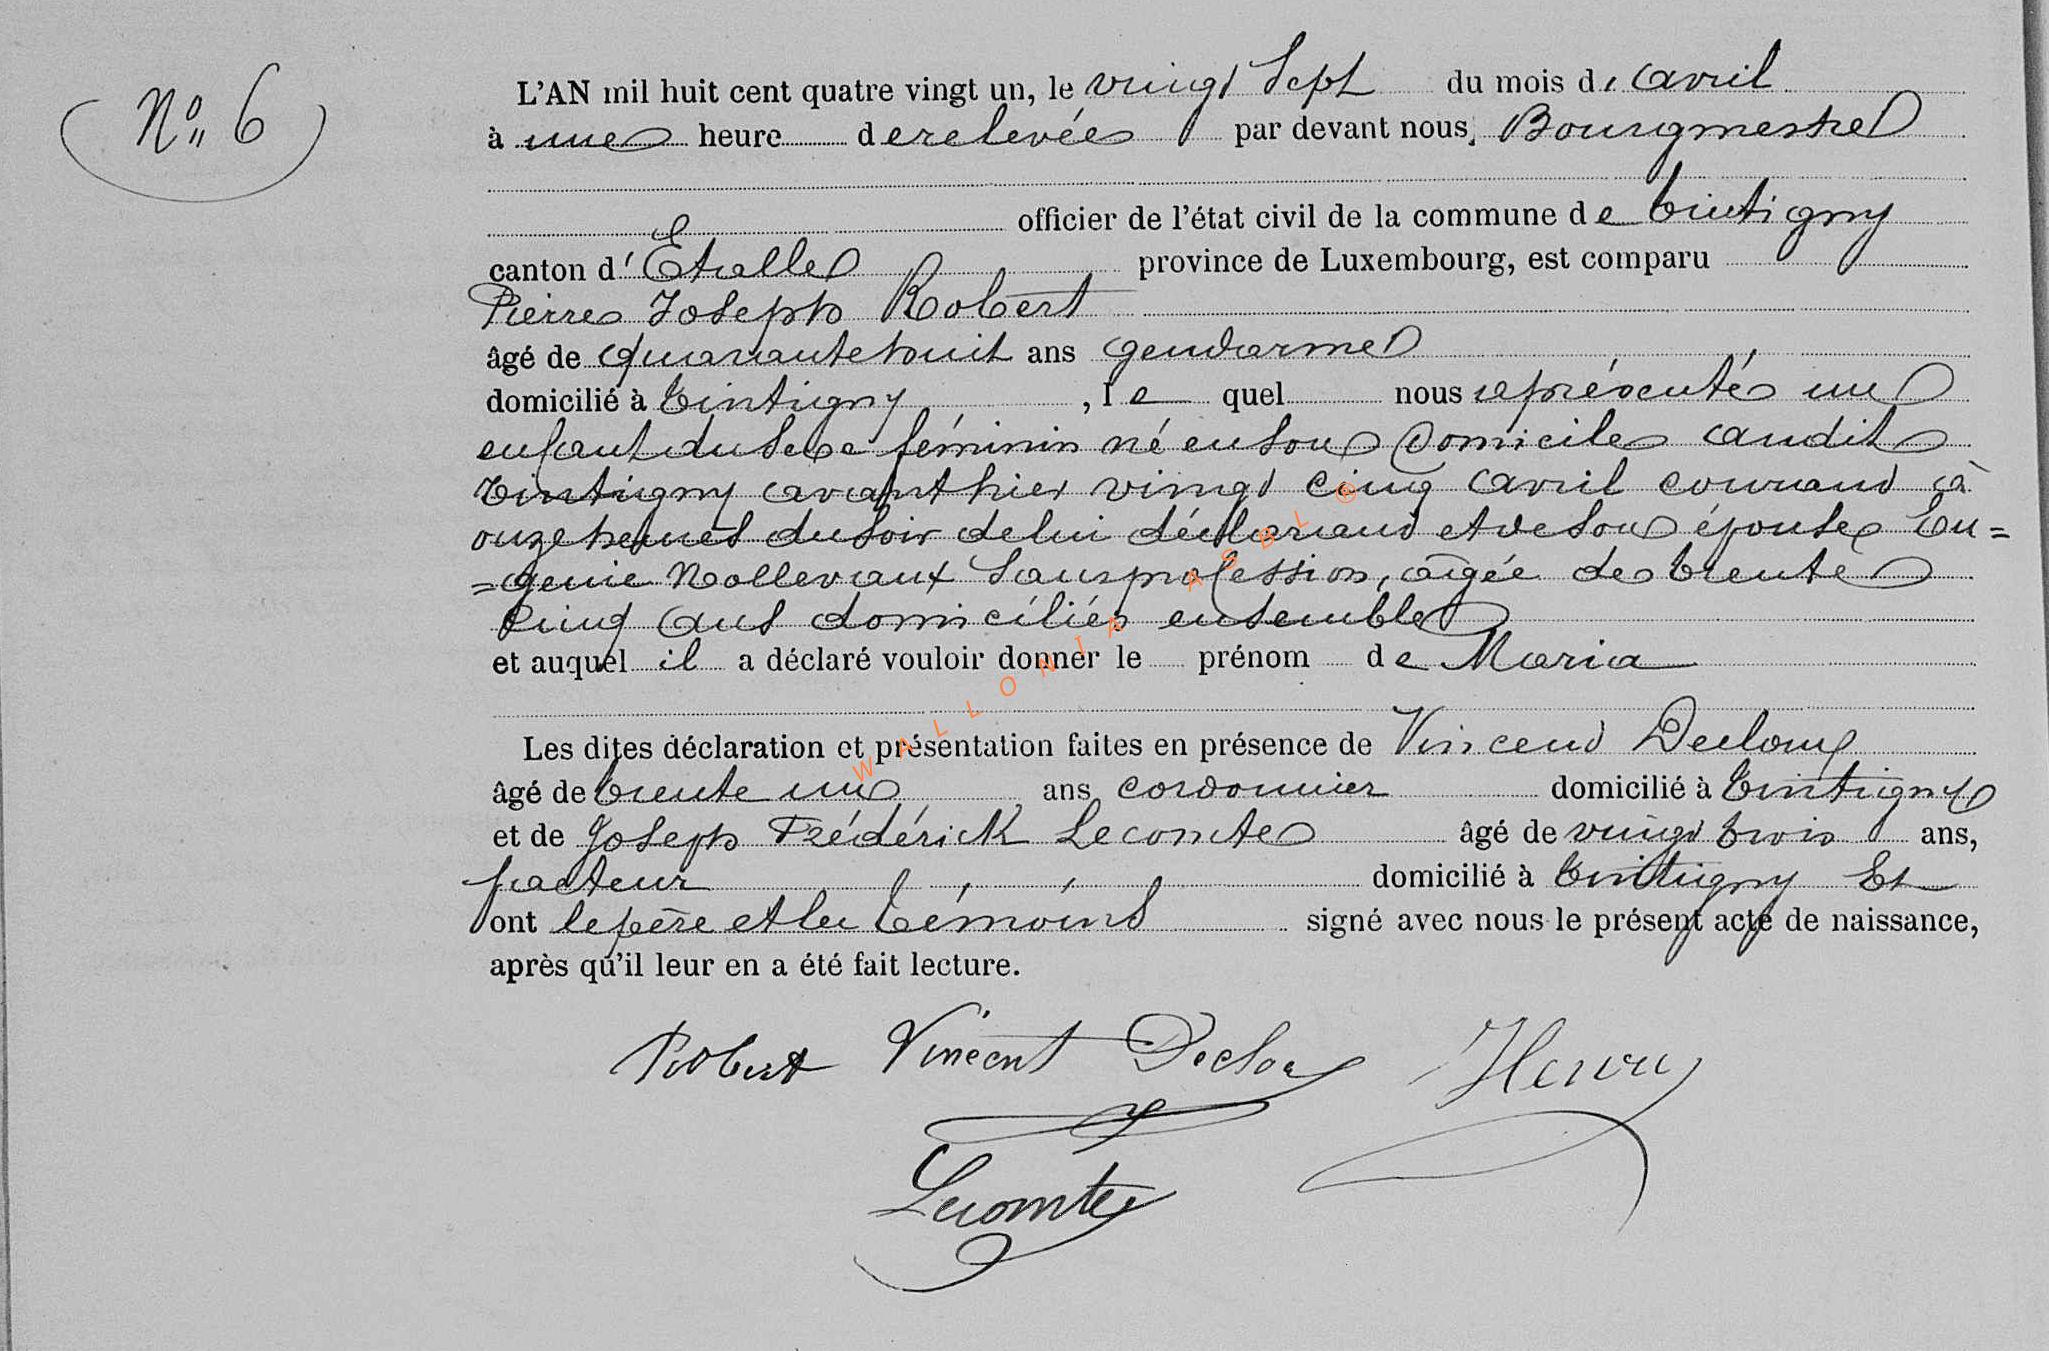 N° 6
L'AN mil huit cent quatre vingt un, le vingt Sept du mois d'avril
à une heure de relevée par devant nous, Bourgmestre
officier de l'état civil de la commune de Tintigny
canton d'Etalle province de Luxembourg, est comparu
Pierre Joseph Robert
âgé de quarante huit ans gendarme
domicilié à Tintigny, le quel nous a présenté un
enfant du sexe féminin né en son domicile audit
Tintigny avanthier vingt cinq avril courant à
onze heures du soir de lui déclarant et de son épouse Eu=
=génie Nollevaux Sans profession, âgée de trente
cinq ans domiciliés ensemble
et auquel il a déclaré vouloir donner le prénom de Maria
Les dites déclaration et présentation faites en présence de Vincent Decloux
âgé de trente un ans cordonnier domicilié à Tintigny
et de Joseph Frédérick Lecomte âgé de vingt trois ans,
facteur domicilié à Tintigny Et
ont le père et les témoins signé avec nous le présent acte de naissance,
après qu'il leur en a été fait lecture.
Robert Vincent Decloux Henry
Lecomte
WALLONIA ASBL ®